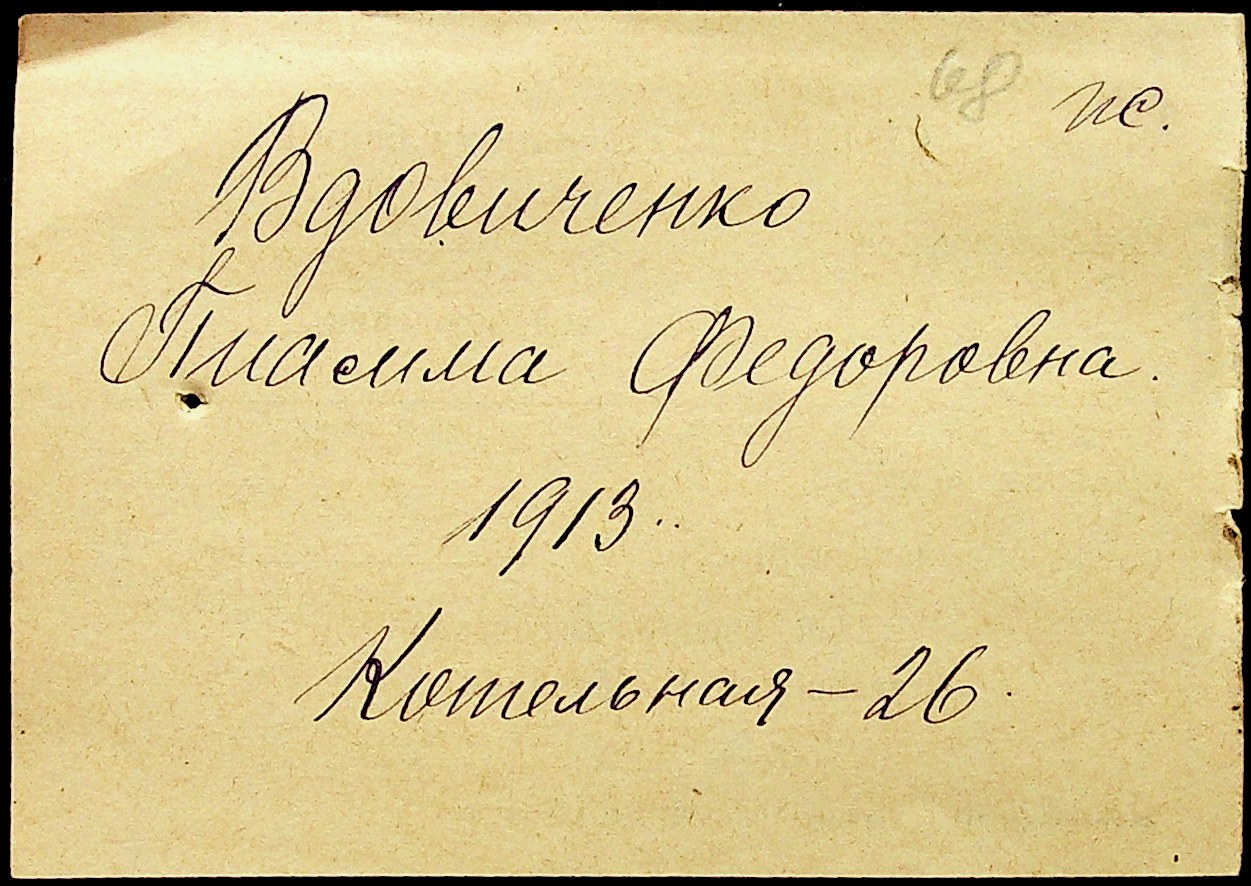 68 пс.
Вдовиченко
Пиасима Федоровна.
1913..
Котельная – 26.